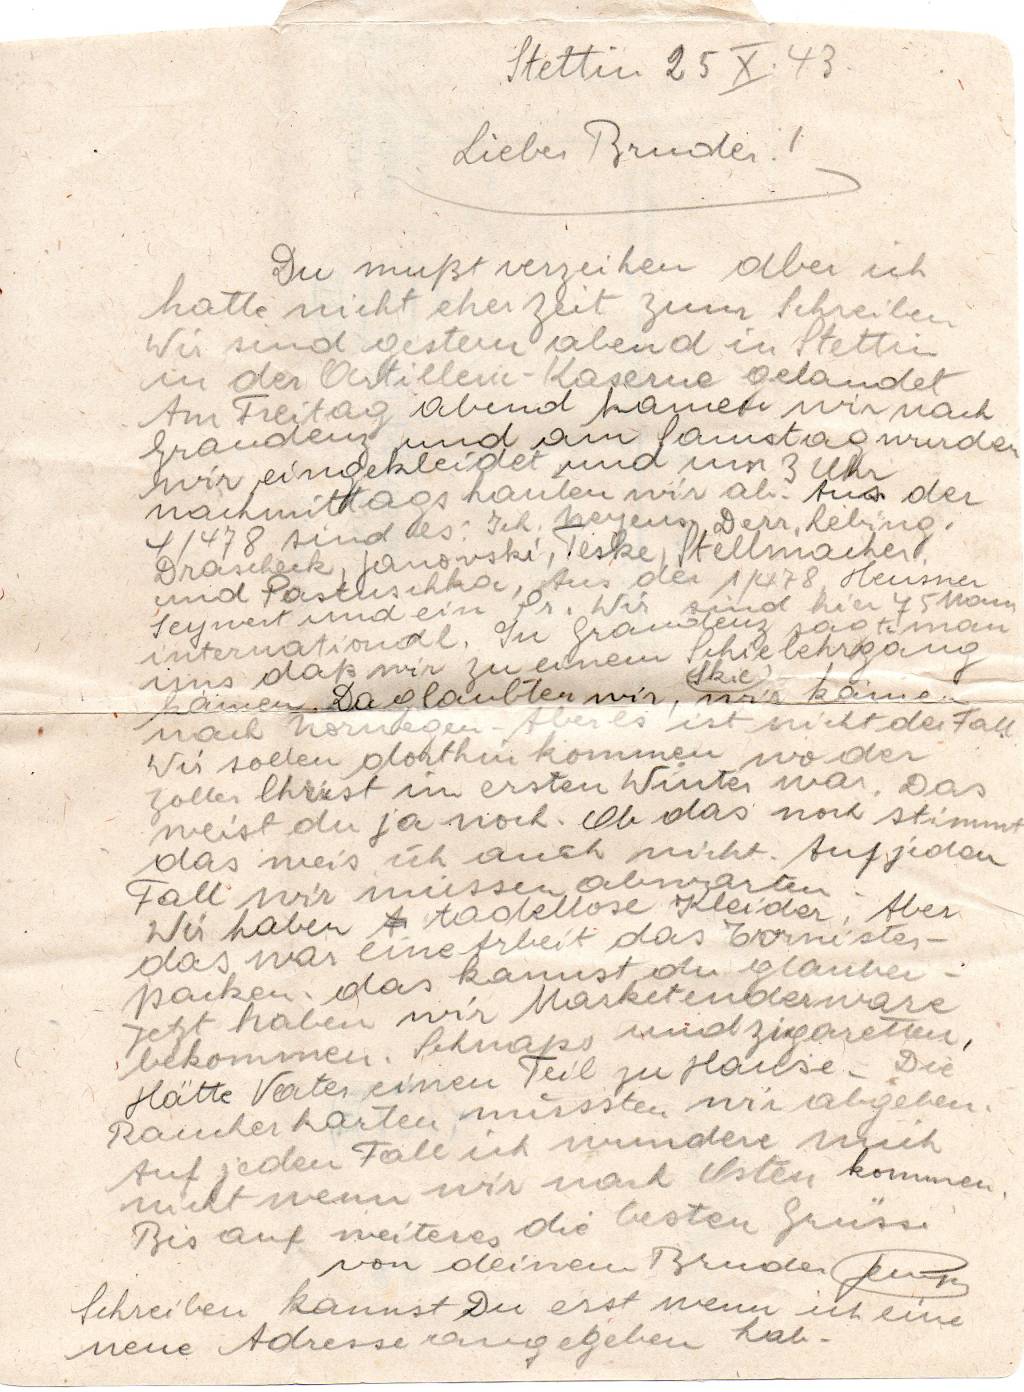 Stettin 25 X. 43.
Lieber Bruder!
Du mußt verzeihen aber ich
hatte nicht eher Zeit zum Schreiben
Wir sind gestern abend in Stettin
in der Artillerie-Kaserne gelandet
Am Freitag abend kamen wir nach
Graudenz und am Samstag wurden
wir eingekleidet und um 3 Uhr
nachmittags hauten wir ab. Aus der
4/478 sind es: Ich, Neyens, Derr, Lebing,
Drascheck, Janovski, Teske, Stellmacher,
und Pastuschka, Aus der 1/478 Heusner
Seywert und ein Pr. Wir sind hier 75 Mann
international. In Graudenz sagte man
uns daß wir zu einem Schielehrgang
(Skie)
kämen. Da glaubten wir, wir kämen
nach Norwegen - Aber es ist nicht der Fall
Wir sollen dorthin kommen wo der
Zoller Christ im ersten Winter war. Das
weist du ja noch. Ob das noch stimmt
das weis ich auch nicht. Auf jeden
Fall wir müssen abwarten -
Wir haben tadellose Kleider, Aber
das war eine Arbeit das Tornister-
packen. das kannst du glauben -
Jetzt haben wir Marketenderware
bekommen. Schnaps und Zigaretten,
Hätte Vater einen Teil zu Hause - Die
Raucherkarten müssten wir abgeben.
Auf jeden Fall ich wundere mich
nicht wenn wir nach Osten kommen.
Bis auf weiteres die besten Grüsse
von deinem Bruder
Schreiben kannst Du erst wenn ich eine
neue Adresse angegeben hab-